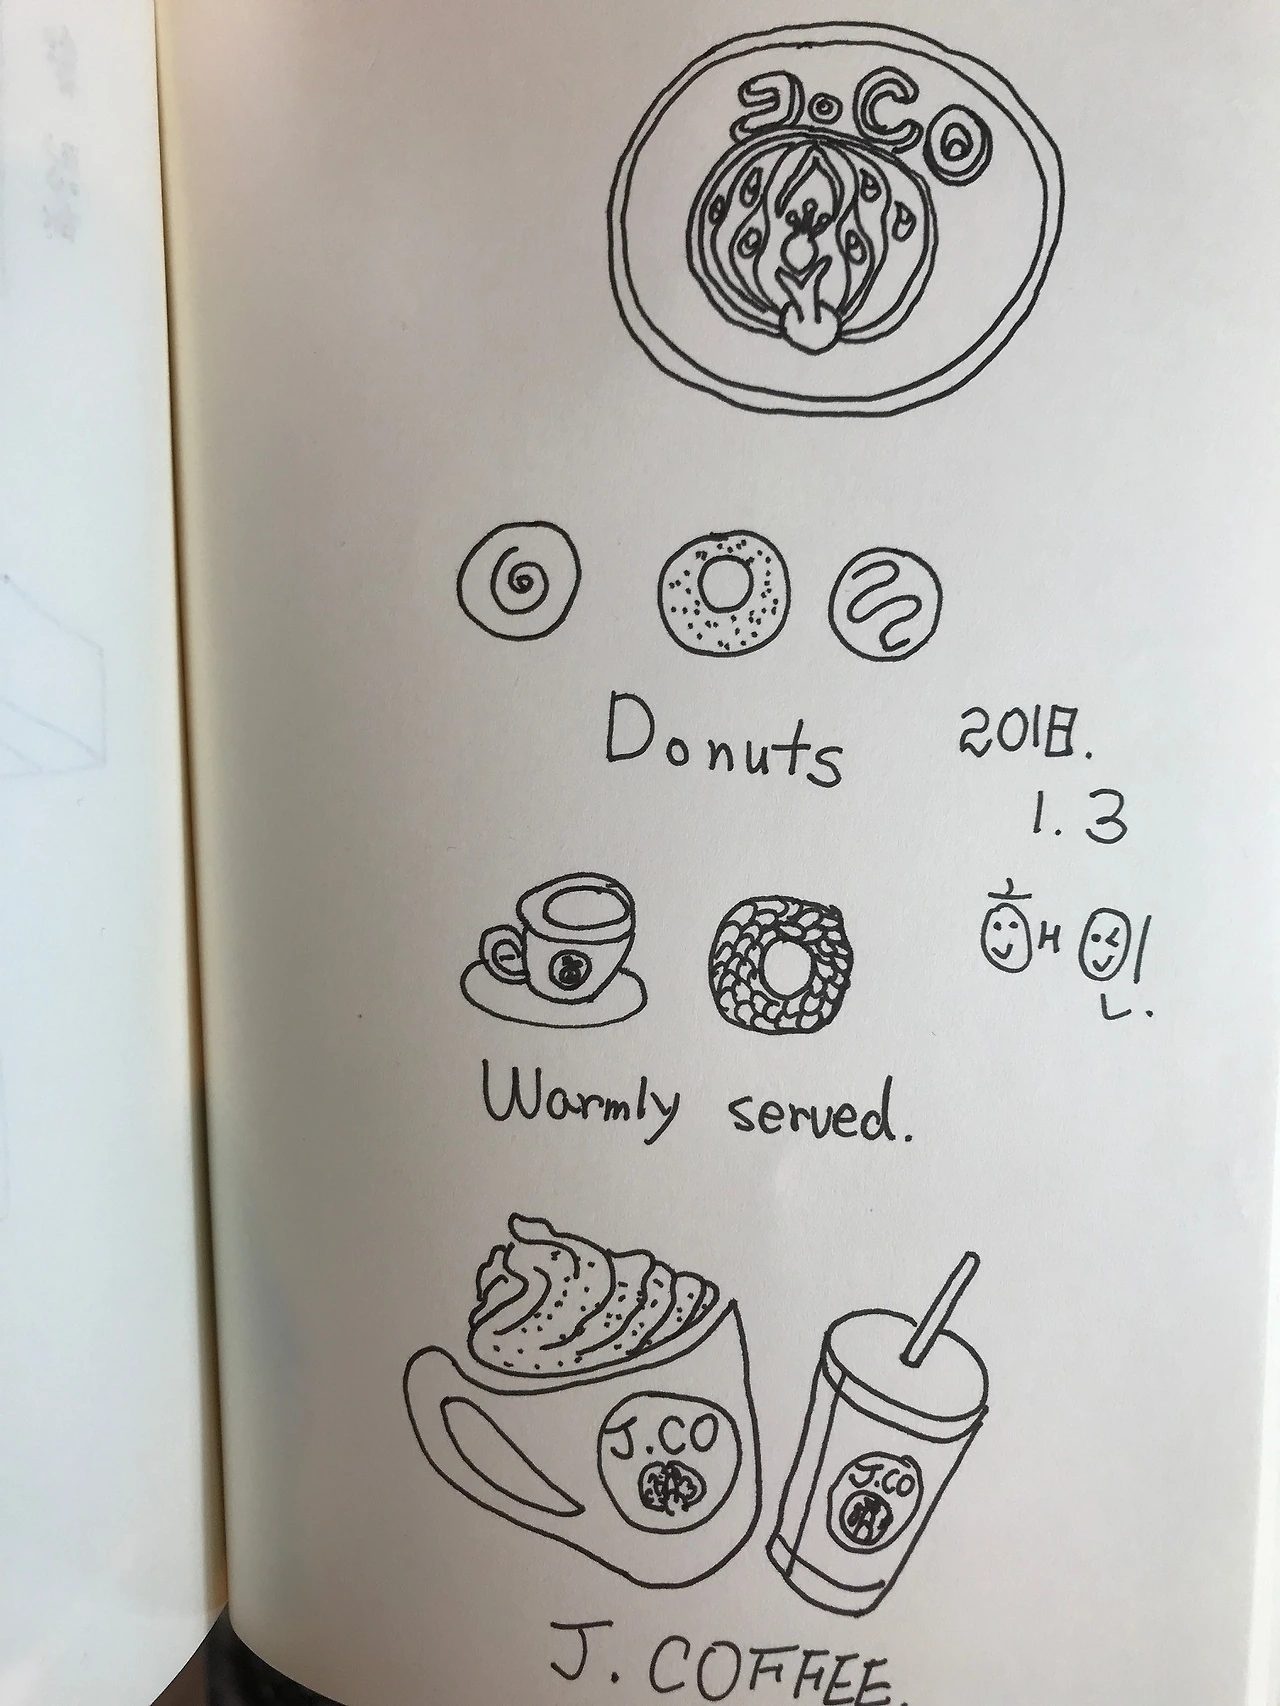 J.CO
Donuts
2018.
1. 3
Warmly served.
J.CO
J.CO
J. COFFEE.